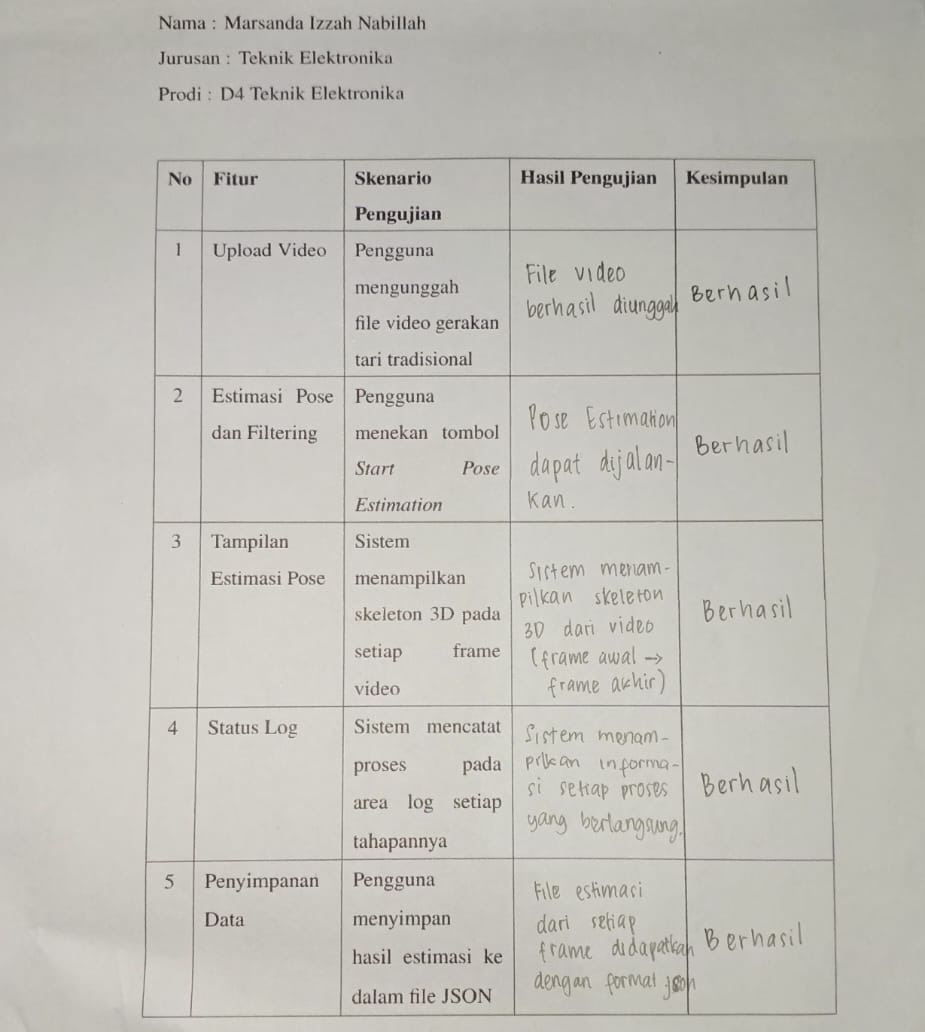 Nama : Marsanda Izzah Nabillah
Jurusan : Teknik Elektronika
Prodi : D4 Teknik Elektronika
No Fitur Skenario Pengujian Hasil Pengujian Kesimpulan
1
Upload Video
Pengguna
mengunggah
file video gerakan
tari tradisional
File video
berhasil diunggah
Berhasil
2
Estimasi Pose
dan Filtering
Pengguna
menekan tombol
Start Pose
Estimation
Pose Estimation
dapat dijalan-
kan.
Berhasil
3
Tampilan
Estimasi Pose
Sistem
menampilkan
skeleton 3D pada
setiap frame
video
Sistem menam-
pilkan skeleton
3D dari video
(frame awal →
frame akhir)
Berhasil
4
Status Log
Sistem mencatat
proses pada
area log setiap
tahapannya
Sistem menam-
pilkan informa-
si setiap proses
yang berlangsung.
Berhasil
5
Penyimpanan
Data
Pengguna
menyimpan
hasil estimasi ke
dalam file JSON
File estimasi
dari setiap
frame didapatkan
dengan format json
Berhasil